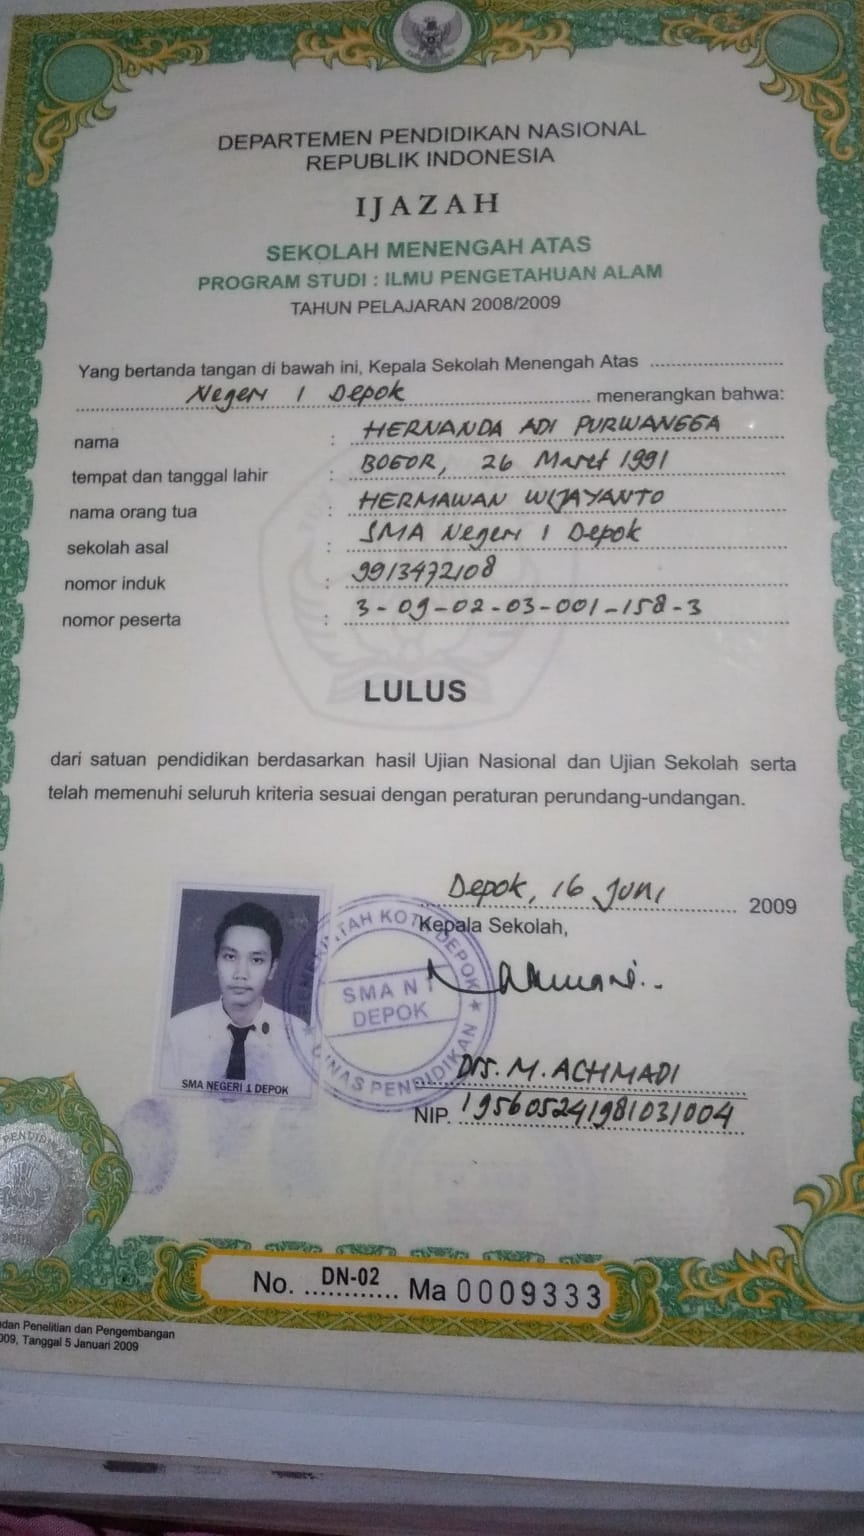 DEPARTEMEN PENDIDIKAN NASIONAL
REPUBLIK INDONESIA
IJAZAH
SEKOLAH MENENGAH ATAS
PROGRAM STUDI : ILMU PENGETAHUAN ALAM
TAHUN PELAJARAN 2008/2009
Yang bertanda tangan di bawah ini, Kepala Sekolah Menengah Atas
Negeri 1 Depok menerangkan bahwa:
nama : HERNANDA ADI PURWANGGA
tempat dan tanggal lahir : BOGOR, 26 Maret 1991
nama orang tua : HERMAWAN WIJAYANTO
sekolah asal : SMA Negeri 1 Depok
nomor induk : 9913472108
nomor peserta : 3-09-02-03-001-158-3
LULUS
dari satuan pendidikan berdasarkan hasil Ujian Nasional dan Ujian Sekolah serta
telah memenuhi seluruh kriteria sesuai dengan peraturan perundang-undangan.
Depok, 16 Juni 2009
Kepala Sekolah,
PEMERINTAH KOTA DEPOK
SMA N 1
DEPOK
DINAS PENDIDIKAN
SMA NEGERI 1 DEPOK
Drs. M. ACHMADI
NIP. 195605241981031004
No. DN-02 Ma 0009333
Penelitian dan Pengembangan
Tanggal 5 Januari 2009